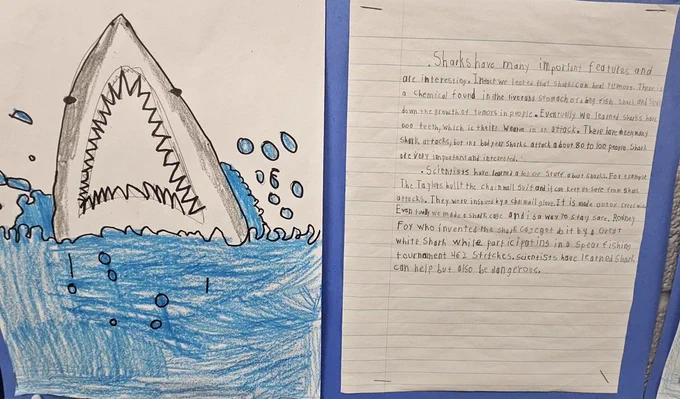 . Sharks have many important features and
are interesting. Infact we leated that sharks can heal tumors. There is
a chemical found in the liver and stomach of a dog fish shark and
down the growth of tumors in people. Eventually we learned sharks have
000 teeth, which is their weapon in an attack. There have been many
shark attacks, but in a bad year sharks attack about 80 to 100 people. Shark
are very important and interested.
. Scientists have learned a lot of stuff about sharks. For example
The Taylors built the chainmail suit and it can keep us safe from shark
attacks. They were inspired by a chainmail glove. It is made out of
Eventually we made a shark cage and is a way to stay safe. Rodney
Fox who invented the shark cage got bit by a Great
white shark while participating in a spear fishing
tournament 462 Stitches. Scientists have learned shark
can help but also be dangerous.